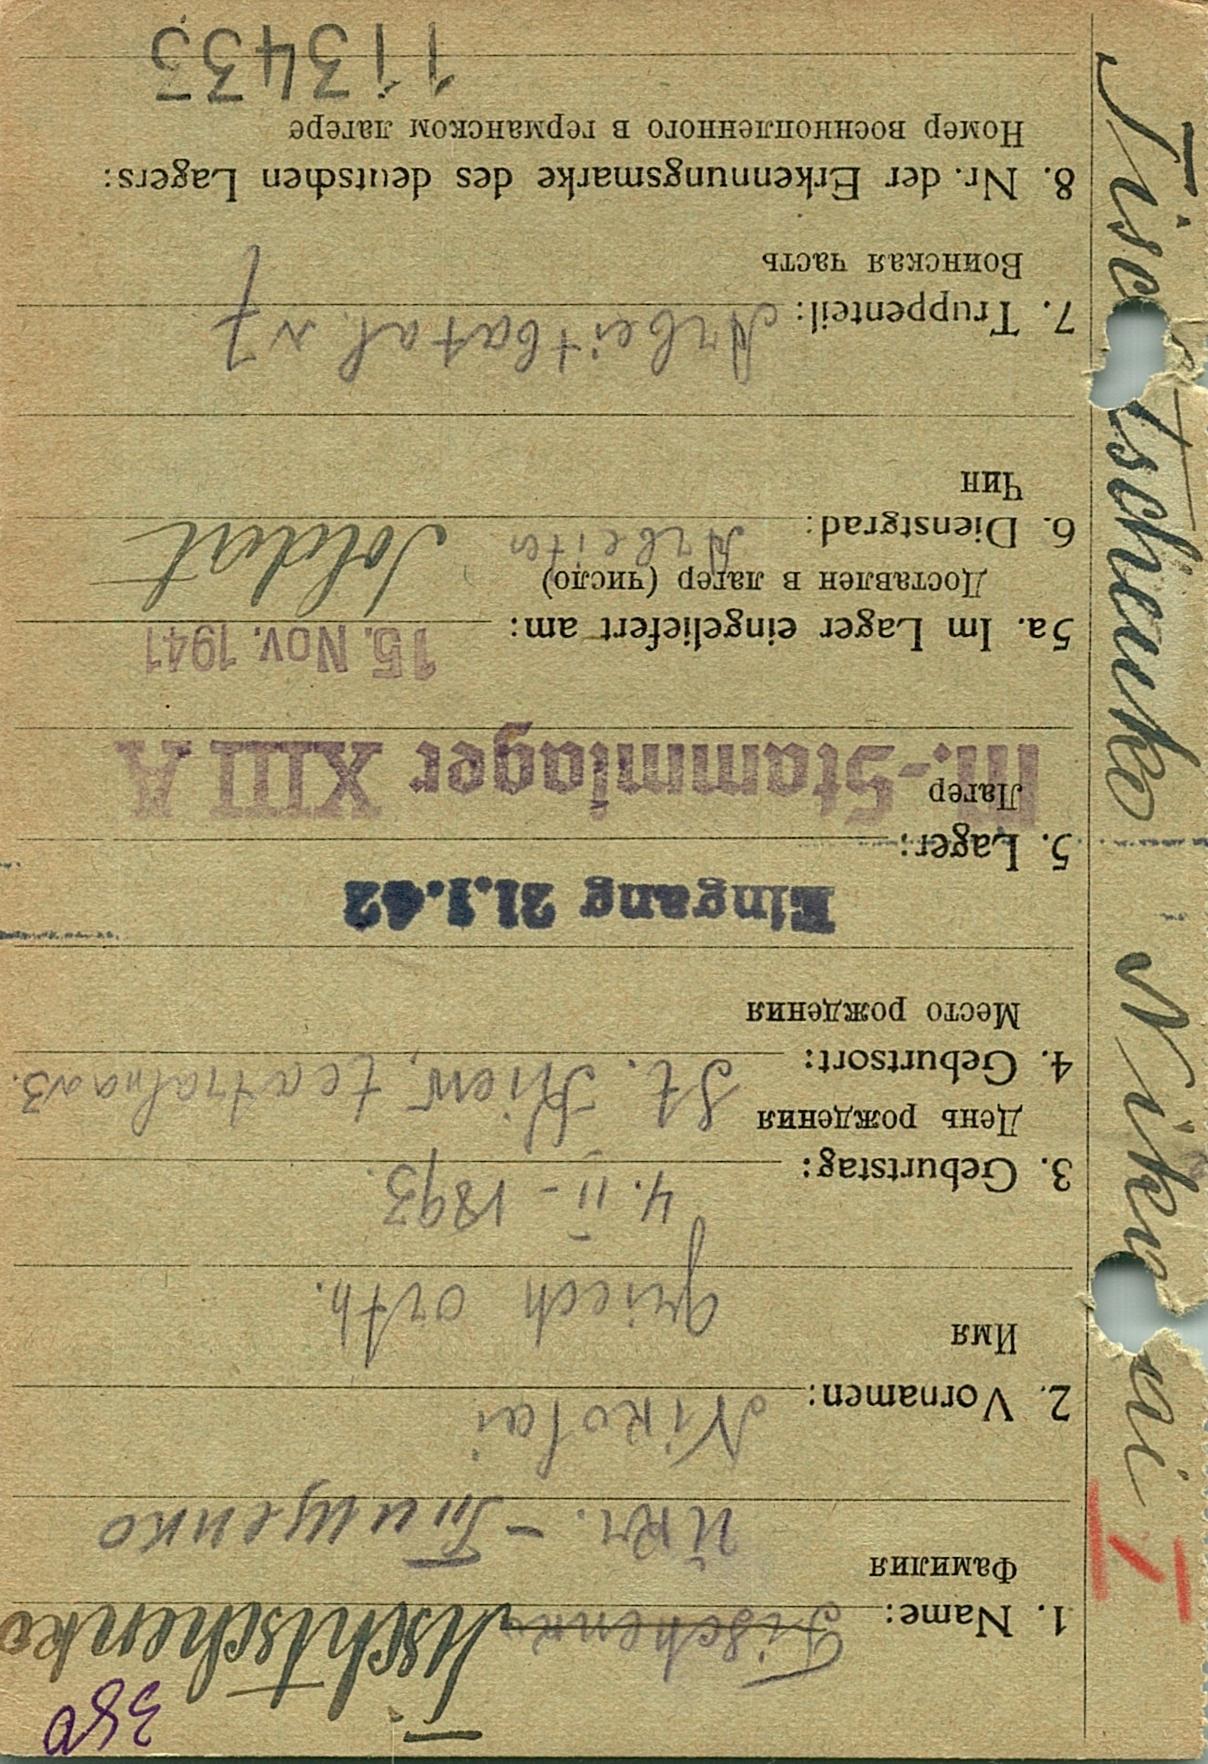 380
1. Name: Tischenko Tischtschenko
Фамилия
Ukr. - Тищенко
2. Vornamen: Nikolai
Имя
griech orth.
3. Geburtstag: 4. II - 1893.
День рождения
4. Geburtsort: St. Kiew, teatralnaa 3.
Место рождения
Eingang 21.1.42
5. Lager: M.-Stammlager XIII A
Лагер
5a. Im Lager eingeliefert am: 15. Nov. 1941
Доставлен в лагер (число)
6. Dienstgrad: Arbeiter Soldat
Чин
7. Truppenteil: Arbeitbatal. N 7
Воинская часть
8. Nr. der Erkennungsmarke des deutschen Lagers:
Номер военнопленного в германском лагере
113433
Tischtschenko Nikolai